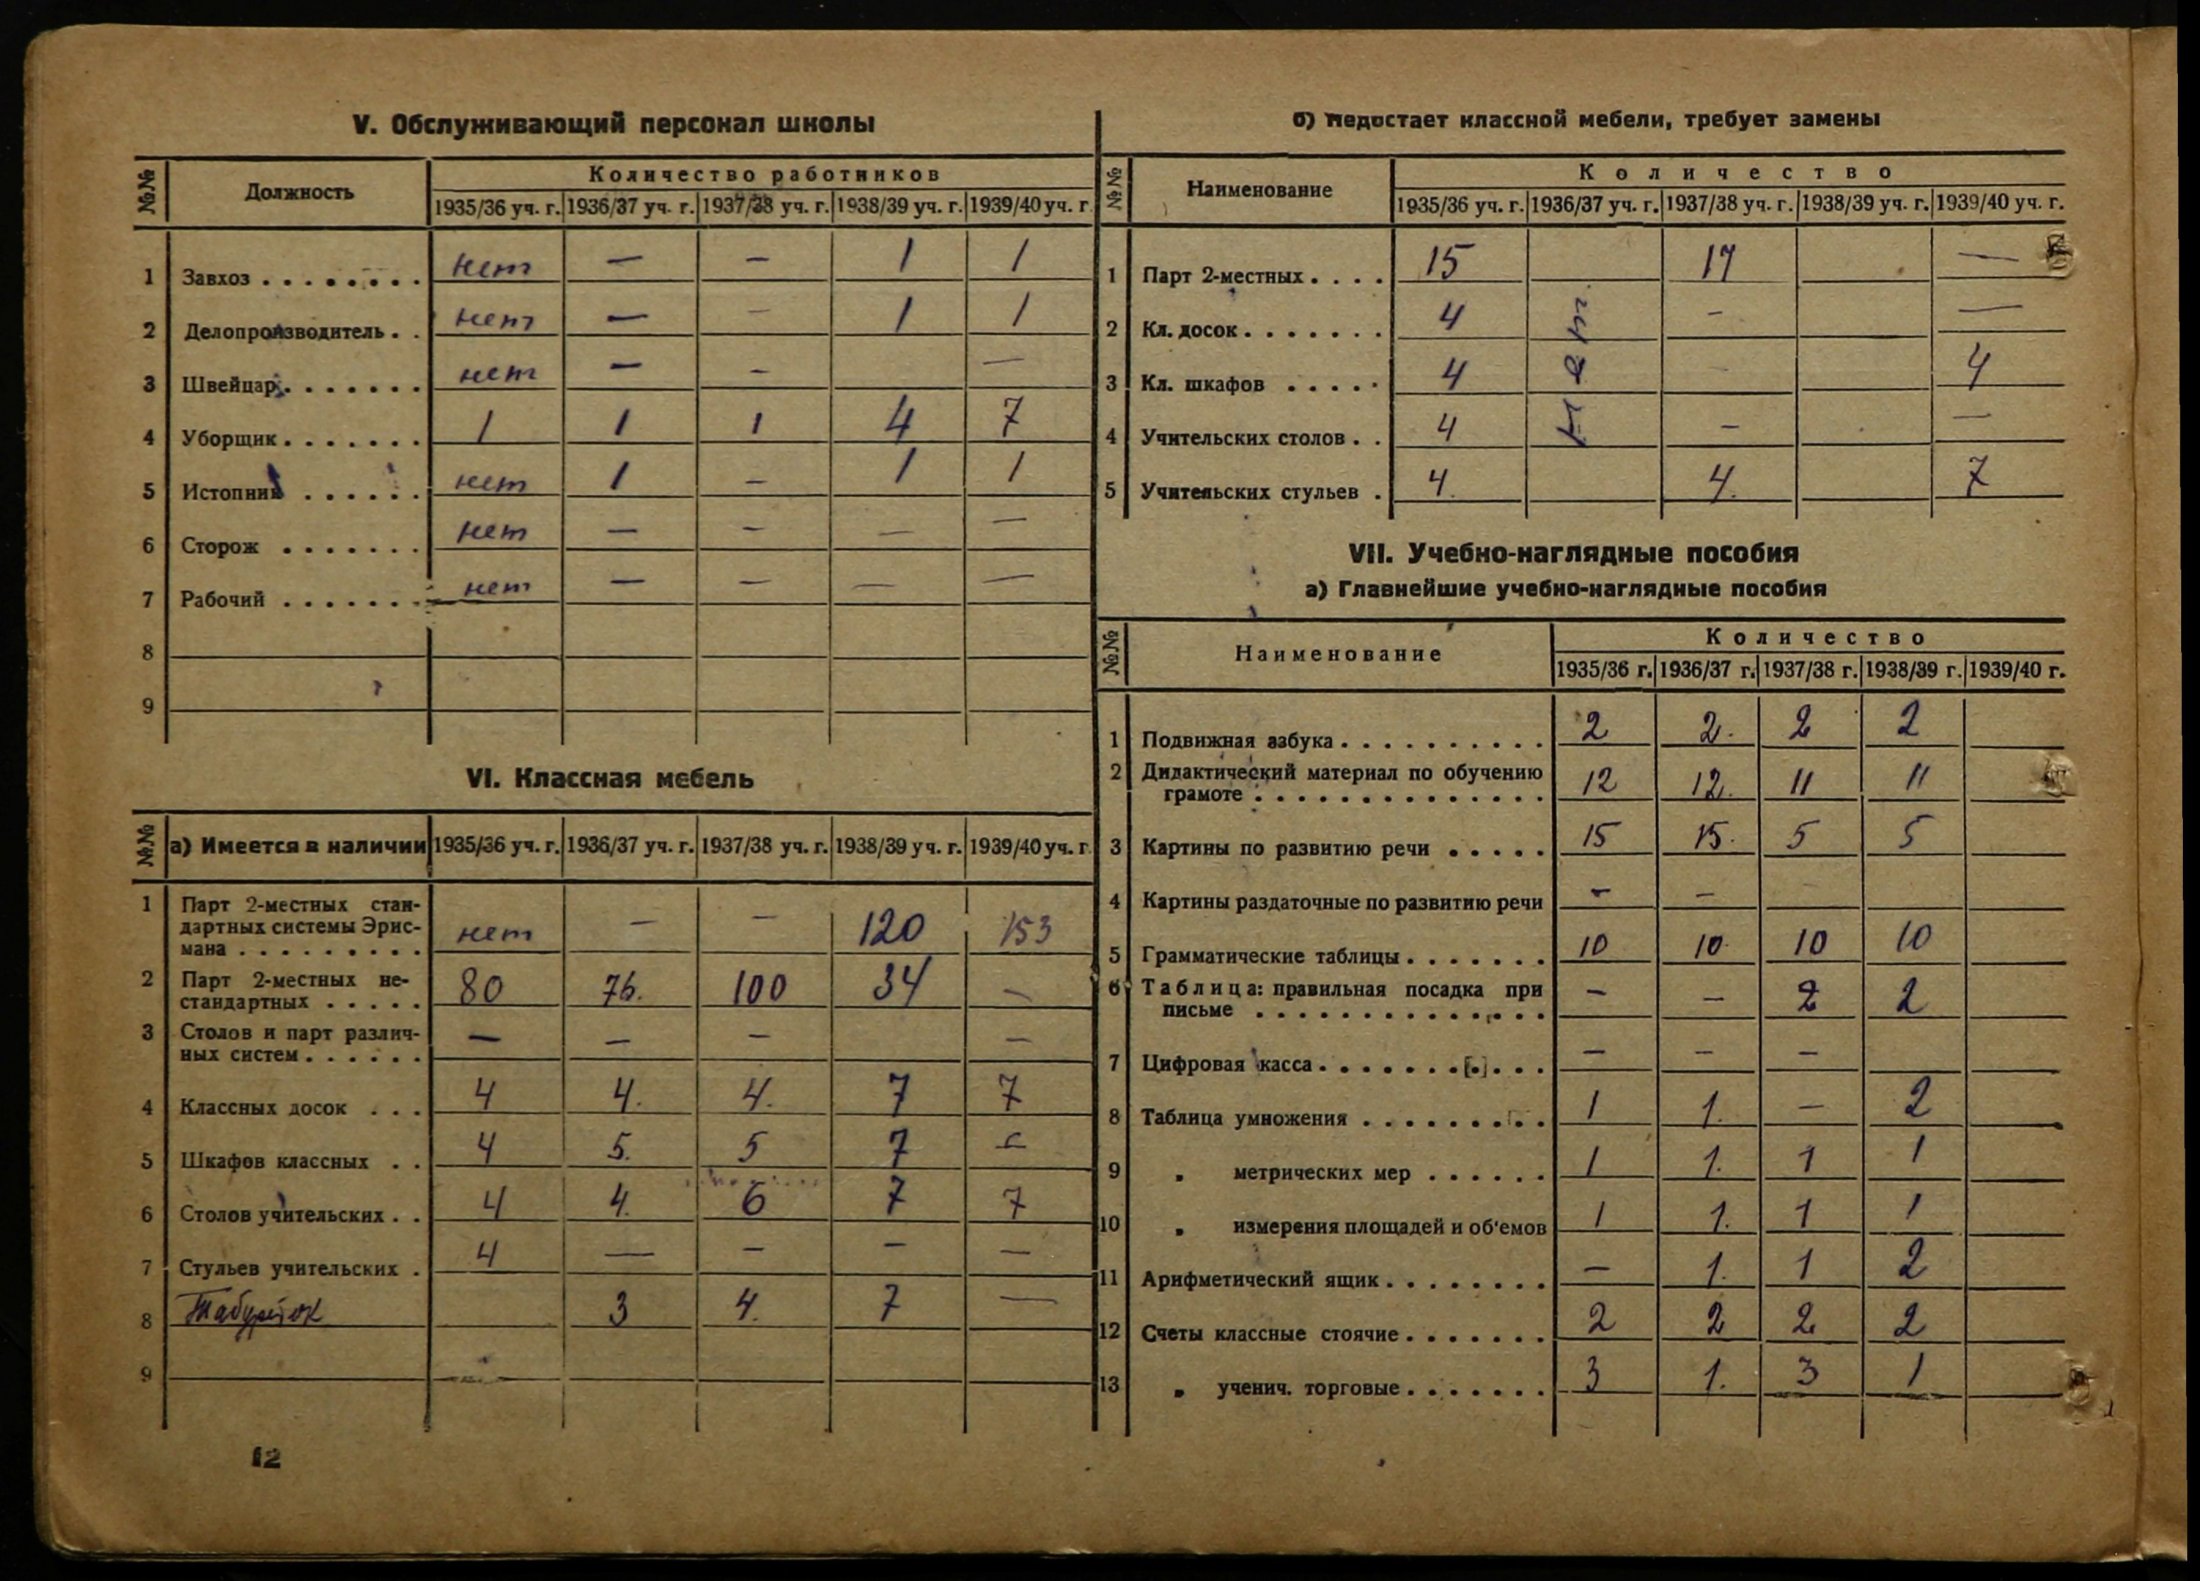 V. Обслуживающий персонал школы
№№ Должность Количество работников
1935/36 уч. г. 1936/37 уч. г. 1937/38 уч. г. 1938/39 уч. г. 1939/40 уч. г.
1 Завхоз . . . . . . . . нет — — 1 1
2 Делопроизводитель . . нет — — 1 1
3 Швейцар . . . . . . . нет — — —
4 Уборщик . . . . . . . 1 1 1 4 7
5 Истопник . . . . . . нет 1 — 1 1
6 Сторож . . . . . . . нет — — — —
7 Рабочий . . . . . . . нет — — — —
8
9
VI. Классная мебель
№№ а) Имеется в наличии 1935/36 уч. г. 1936/37 уч. г. 1937/38 уч. г. 1938/39 уч. г. 1939/40 уч. г.
1 Парт 2-местных стан-
дартных системы Эрис-
мана . . . . . . . . . нет — — 120 153
2 Парт 2-местных не-
стандартных . . . . . 80 76. 100 34 —
3 Столов и парт различ-
ных систем . . . . . . — — — —
4 Классных досок . . . 4 4. 4. 7 7
5 Шкафов классных . . 4 5. 5 7
6 Столов учительских . . 4 4. 6 7 7
7 Стульев учительских . 4 — — — —
8 Табуреток 3 4. 7 —
9
12
б) Недостает классной мебели, требует замены
№№ Наименование Количество
1935/36 уч. г. 1936/37 уч. г. 1937/38 уч. г. 1938/39 уч. г. 1939/40 уч. г.
1 Парт 2-местных . . . . 15 17 —
2 Кл. досок . . . . . . . 4 нет — —
3 Кл. шкафов . . . . . 4 - 4
4 Учительских столов . . 4 — —
5 Учительских стульев . 4. 4. 7
VII. Учебно-наглядные пособия
а) Главнейшие учебно-наглядные пособия
№№ Наименование Количество
1935/36 г. 1936/37 г. 1937/38 г. 1938/39 г. 1939/40 г.
1 Подвижная азбука . . . . . . . . . . 2 2. 2 2
2 Дидактический материал по обучению
грамоте . . . . . . . . . . . . . . 12 12. 11 11
3 Картины по развитию речи . . . . . 15 15. 5 5
4 Картины раздаточные по развитию речи — —
5 Грамматические таблицы . . . . . . . 10 10. 10 10
6 Таблица: правильная посадка при
письме . . . . . . . . . . . . . . — — 2 2
7 Цифровая касса . . . . . . . [.] . . . — — —
8 Таблица умножения . . . . . . . . . 1 1. — 2
9 „ метрических мер . . . . . . 1 1. 1 1
10 „ измерения площадей и об'емов 1 1. 1 1
11 Арифметический ящик . . . . . . . . — 1. 1 2
12 Счеты классные стоячие . . . . . . . 2 2 2 2
13 „ ученич. торговые . . . . . . . 3 1. 3 1